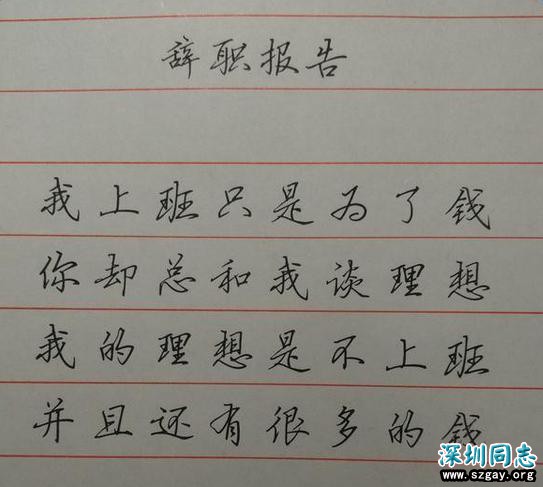 辞职报告
我上班只是为了钱
你却总和我谈理想
我的理想是不上班
并且还有很多的钱
深圳同志
www.szgay.org